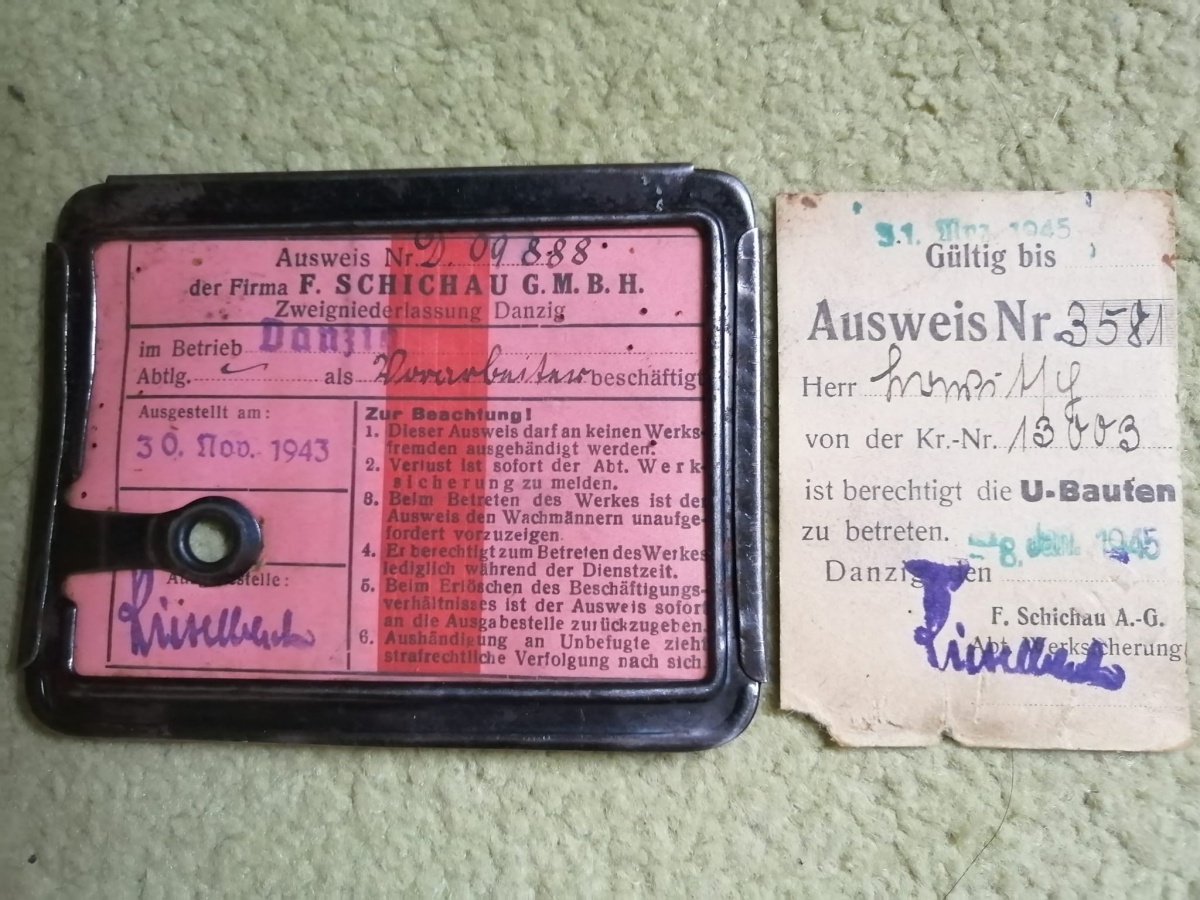 Ausweis Nr D. 09888
der Firma F. SCHICHAU G.M.B.H.
Zweigniederlassung Danzig
im Betrieb Danzig
Abtlg. als Vorarbeiter beschäftigt
Ausgestellt am:
30. Nov. 1943
Zur Beachtung!
1. Dieser Ausweis darf an keinen Werks-
fremden ausgehändigt werden.
2. Verlust ist sofort der Abt. Werk-
sicherung zu melden.
3. Beim Betreten des Werkes ist der
Ausweis den Wachmännern unaufge-
fordert vorzuzeigen.
4. Er berechtigt zum Betreten des Werkes
lediglich während der Dienstzeit.
5. Beim Erlöschen des Beschäftigungs-
verhältnisses ist der Ausweis sofort
an die Ausgabestelle zurückzugeben.
6. Aushändigung an Unbefugte zieht
strafrechtliche Verfolgung nach sich.
31. Mrz. 1945
Gültig bis
Ausweis Nr. 3581
Herr
von der Kr.-Nr. 13003
ist berechtigt die U-Bauten
zu betreten.
-8. Jan. 1945
Danzig, den
F. Schichau A.-G.
Abt. Werksicherung